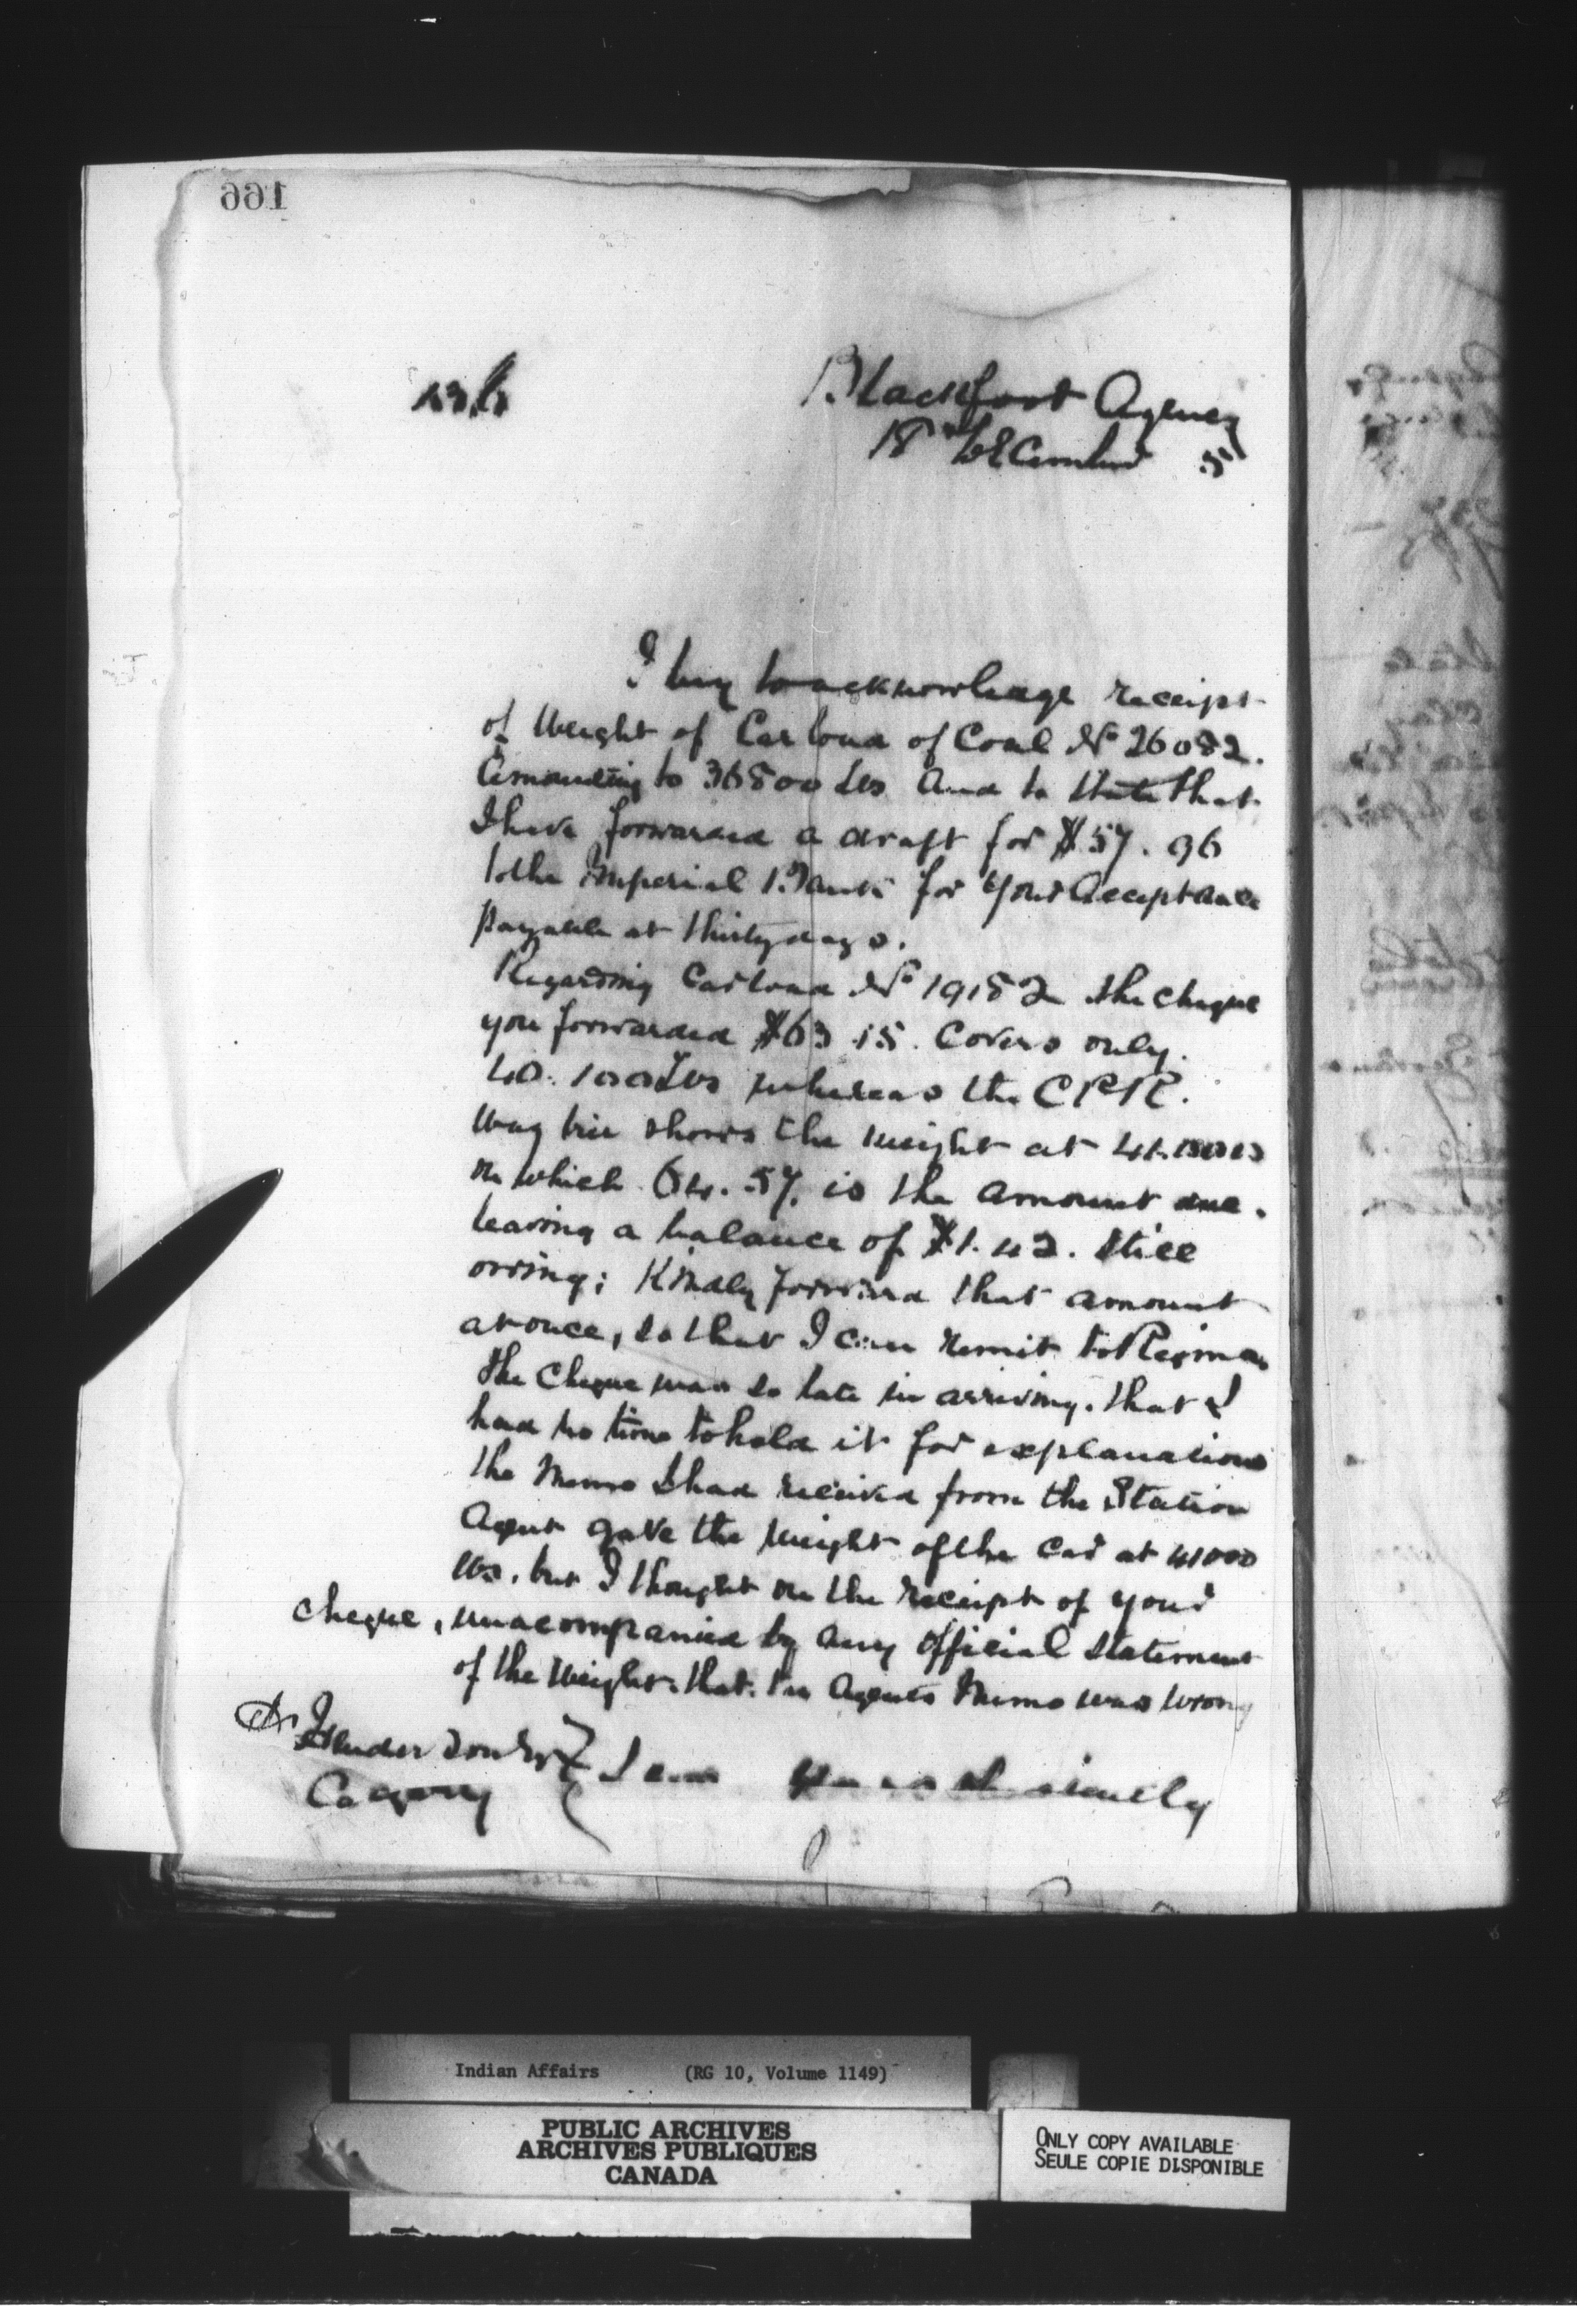 166
Blackfoot Agency
18th December 91
I beg to acknowledge receipt
of Weight of Carload of Coal No 26082.
Amounting to 36800 Lbs and to state that
I have forwarded a draft for $57.96
to the Imperial Bank for your acceptance
payable at thirty days.
Regarding Carload No 19182 the cheque
you forwarded $63.15. Covers only.
40.100 Lbs whereas the C P R.
Way bill shows the weight at 41.000
on which 64.57. is the amount due.
leaving a balance of $1.42. still
owing; Kindly forward that amount
at once, so that I can remit to Regina
the cheque was so late in arriving. that I
had no time to hold it for explanations
the memo I had received from the Station
Agent gave the weight of the car at 41000
lbs. but I thought on the receipt of your
cheque, unacompanied by any official statement
of the weight. that. the Agents Memo was wrong
Henderson Esq I am yours obediently
Calgary
Indian Affairs (RG 10, Volume 1149)
PUBLIC ARCHIVES
ARCHIVES PUBLIQUES
CANADA
ONLY COPY AVAILABLE
SEULE COPIE DISPONIBLE